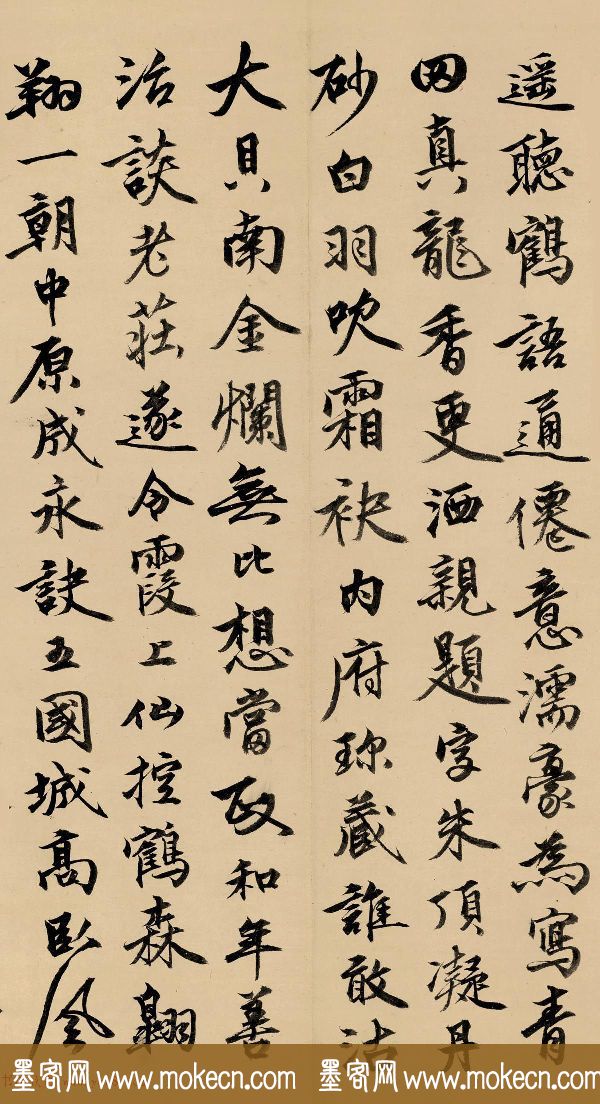 遥聽鶴語通僊意濡豪為寫青
田真龍香更洒親題字朱頂凝丹
砂白羽吹霜袂内府珎藏誰敢沽
大貝南金爛無比想當政和年善
治談老莊遂令霞上仙控鶴森翱
翔一朝中原成永訣五國城高臥風
墨客网 www.mokecn.com 墨客网 www.mokecn.com